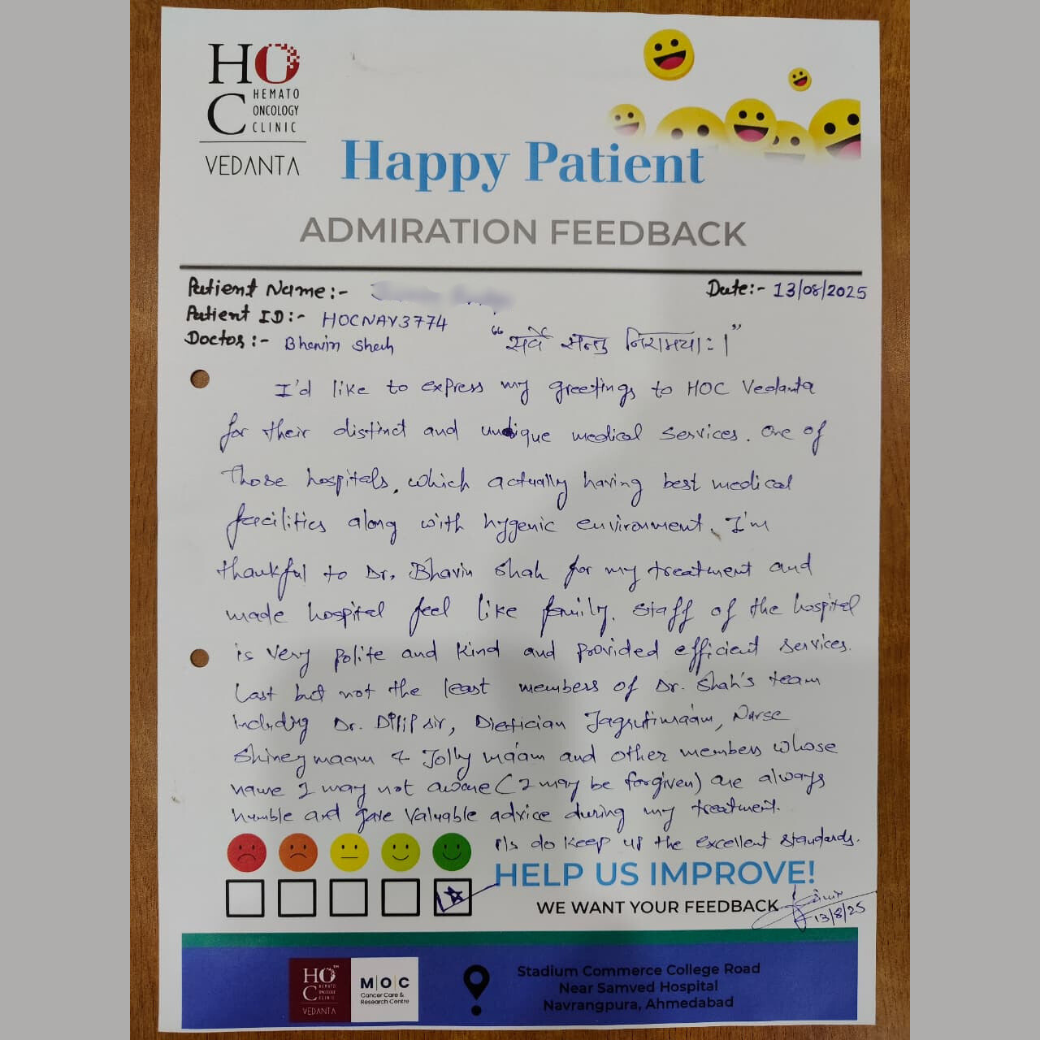 HOC
HEMATO
ONCOLOGY
CLINIC
VEDANTA
Happy Patient
ADMIRATION FEEDBACK
Patient Name:-
Date:- 13/08/2025
Patient ID:- HOCNAV3774
Doctor:- Bhavin Shah
"सर्वे सन्तु निरामयाः।"
I'd like to express my greetings to HOC Vedanta
for their distinct and undique medical services. One of
Those hospitals, which actually having best medical
facilities along with hygenic environment. I'm
thankful to Dr. Bhavin Shah for my treatment and
made hospital feel like family. Staff of the hospital
is very polite and kind and provided efficient services.
Last but not the least members of Dr. Shah's team
Including Dr. Dilip sir, Dietician Jagruti maam, Nurse
Shiney maam & Jolly ma'am and other members whose
name I may not aware (I may be forgiven) are always
humble and gave valuable advice during my treatment.
Pls do keep up the excellent standards.
HELP US IMPROVE!
WE WANT YOUR FEEDBACK
13/8/25
HOC
HEMATO
ONCOLOGY
CLINIC
VEDANTA
M|O|C
Cancer Care &
Research Centre
Stadium Commerce College Road
Near Samved Hospital
Navrangpura, Ahmedabad